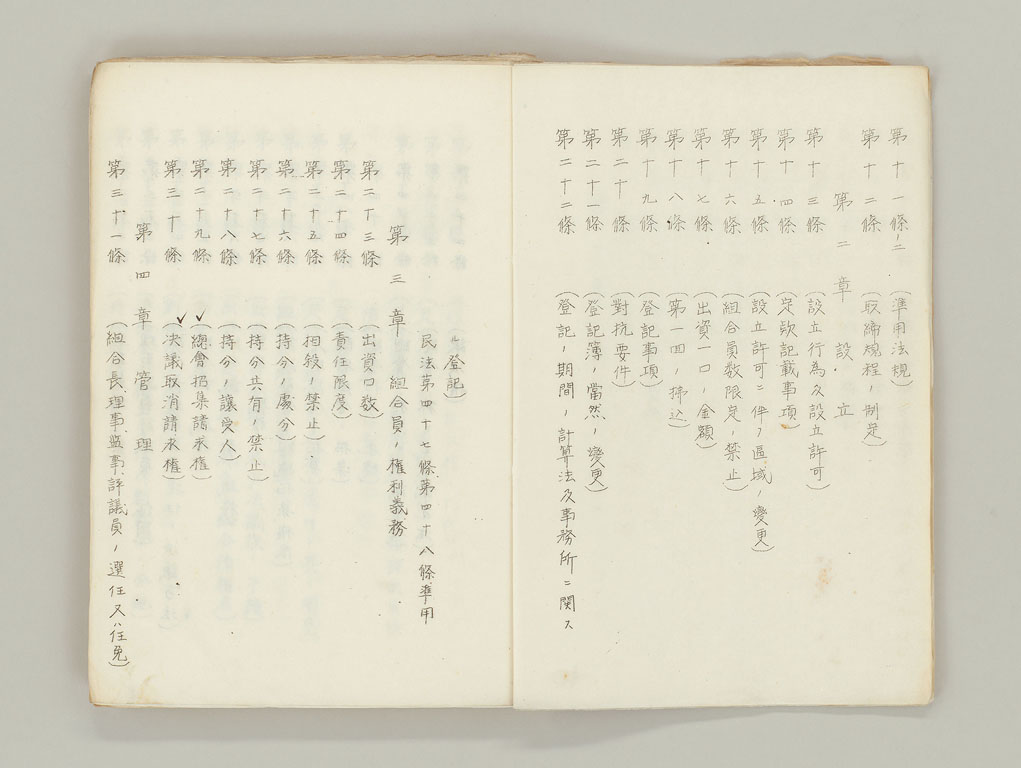 第十一條ノ二 (準用法規)
第十二條 (取締規程ノ制定)
第二章 設立
第十三條 (設立行為及設立許可)
第十四條 (定款記載事項)
第十五條 (設立許可ニ伴フ區域ノ變更)
第十六條 (組合員数限定ノ禁止)
第十七條 (出資一口ノ金額)
第十八條 (第一回ノ拂込)
第十九條 (登記事項)
第二十條 (對抗要件)
第二十一條 (登記簿ノ當然ノ變更)
第二十二條 (登記ノ期間ノ計算法及事務所ニ関ス
ル登記)
民法第四十七條第四十八條準用
第三章 組合員ノ權利義務
第二十三條 (出資口数)
第二十四條 (責任限度)
第二十五條 (相殺ノ禁止)
第二十六條 (持分ノ處分)
第二十七條 (持分共有ノ禁止)
第二十八條 (持分ノ讓受人)
第二十九條 (總會招集請求權)
第三十條 (決議取消請求權)
第四章 管理
第三十一條 (組合長、理事、監事、評議員ノ選任又ハ任免)